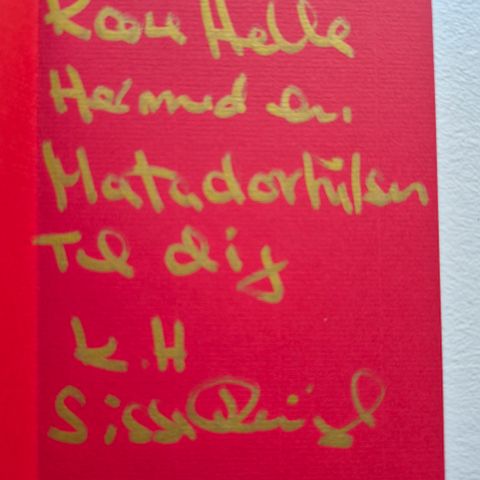 Kære Helle
Hermed en
Matadorhilsen
Til dig
K.H
Sisse Reingaard